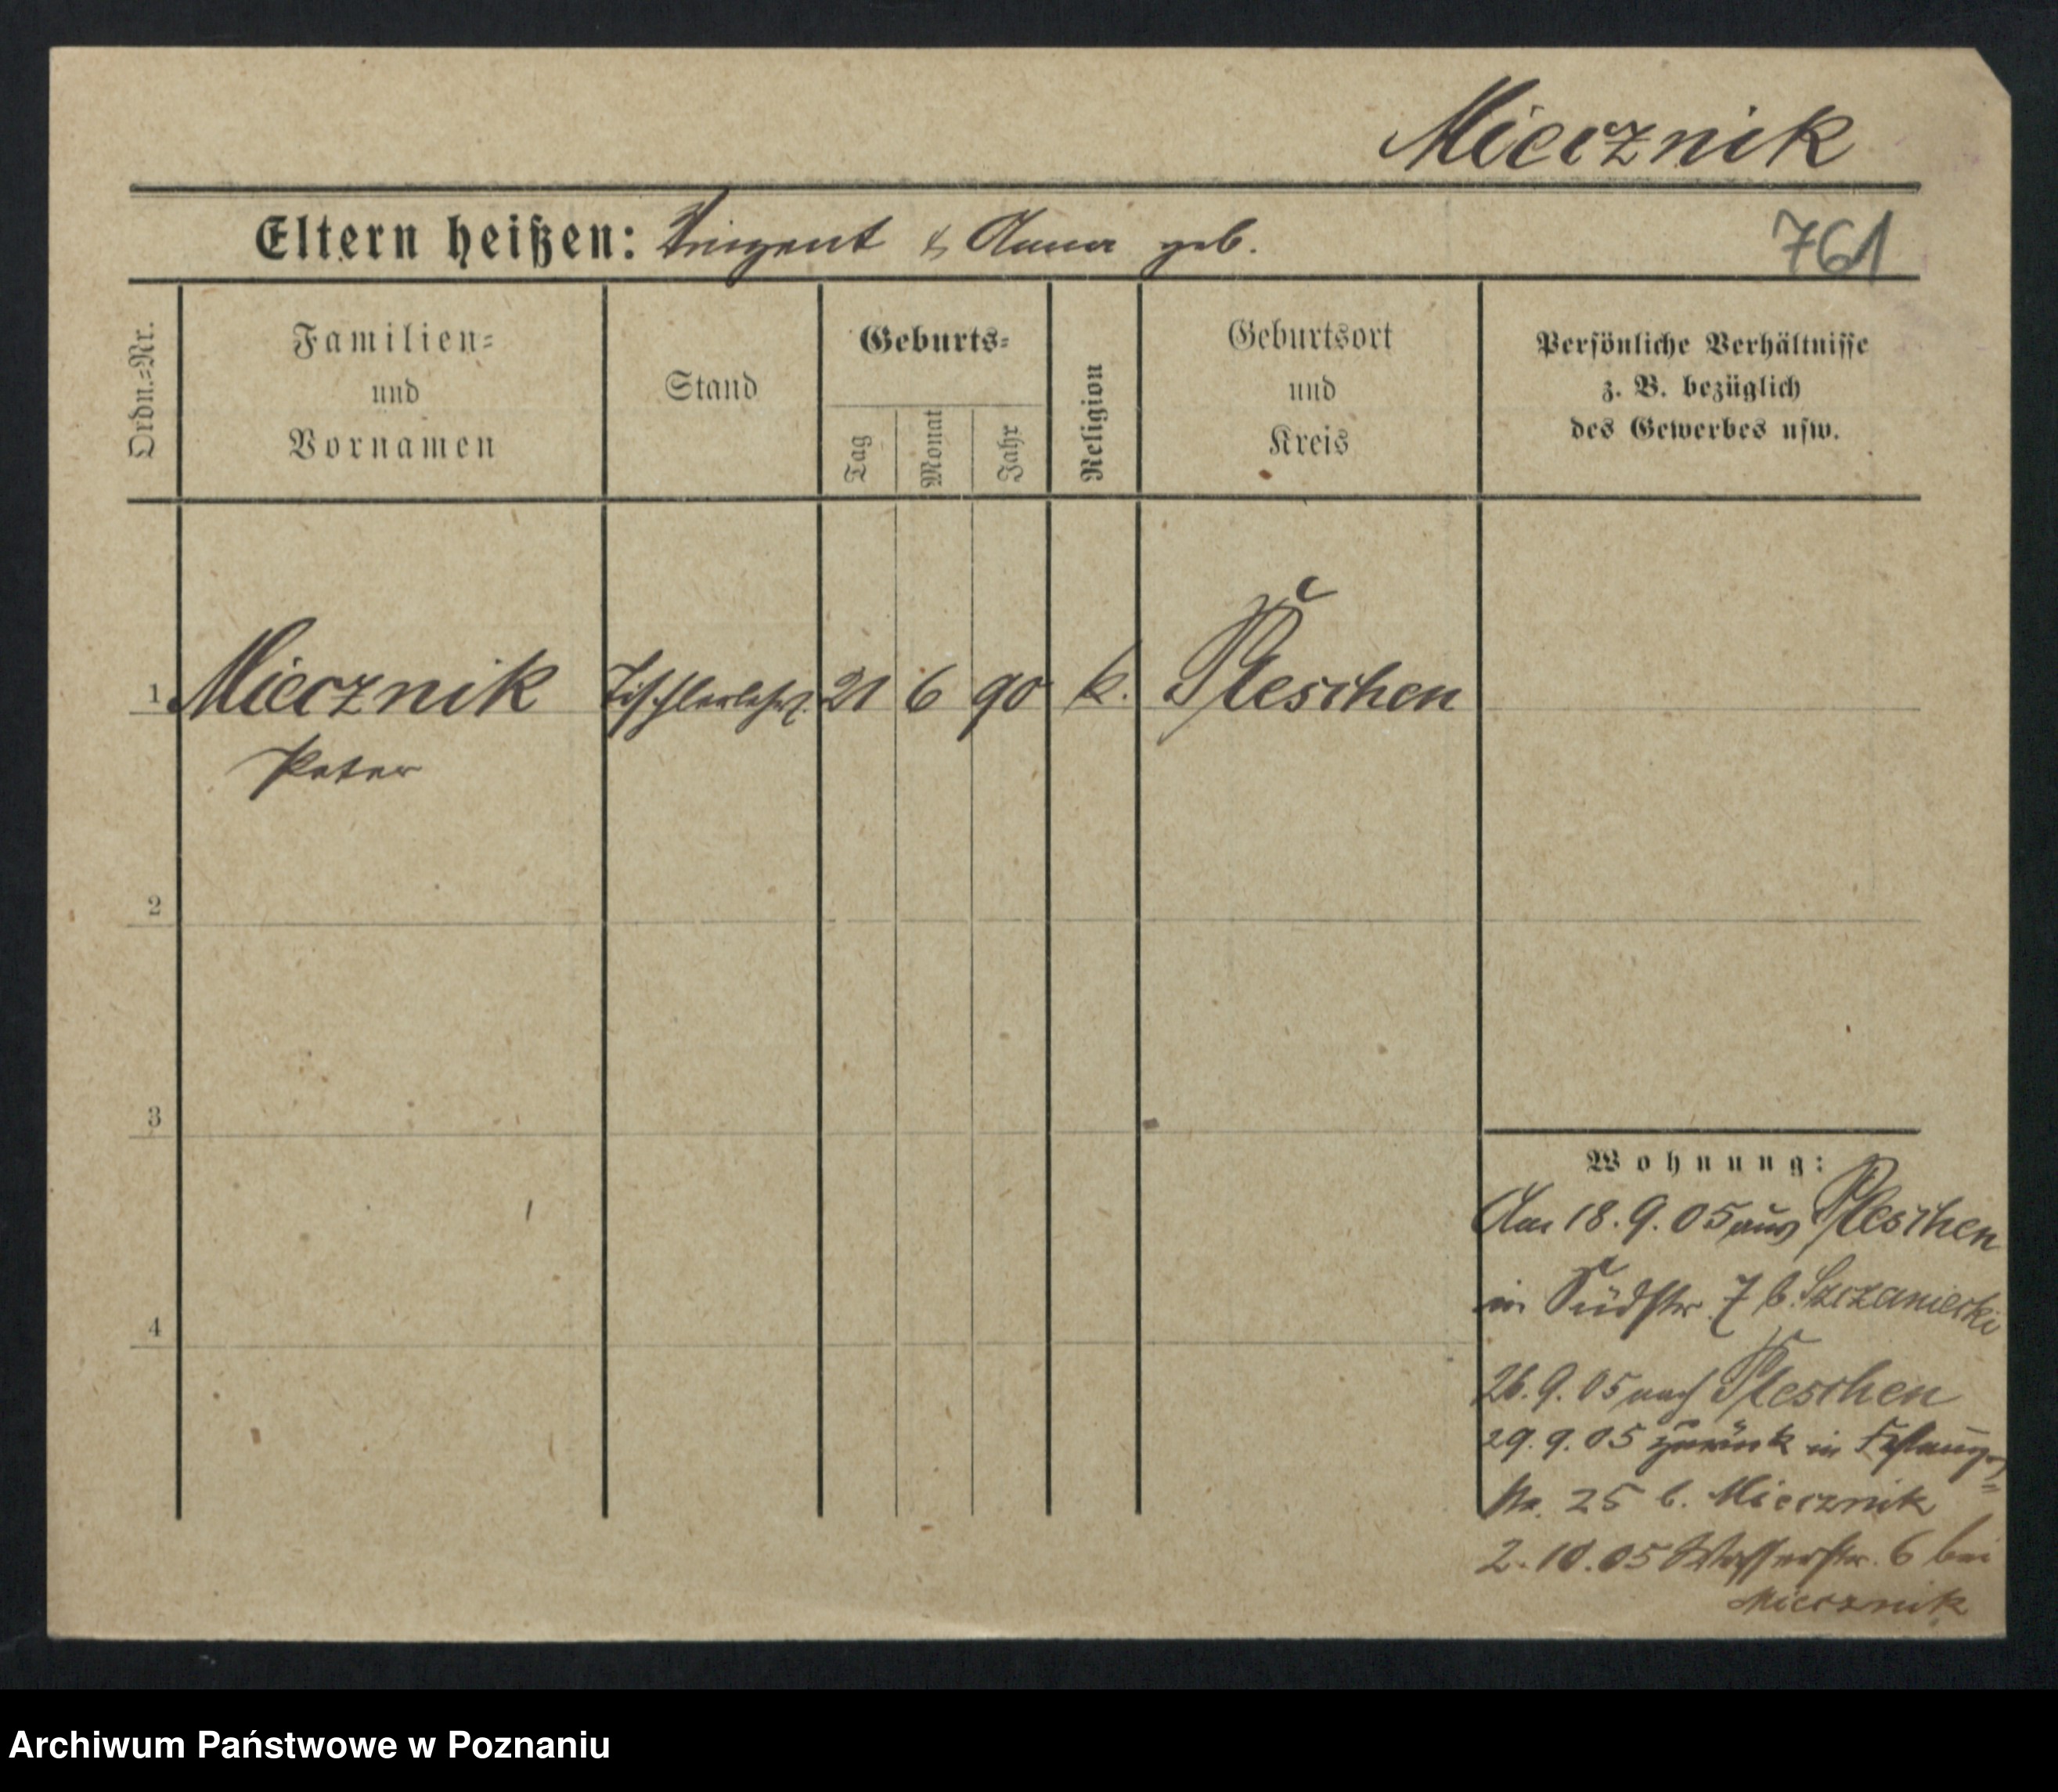 Miecznik
Eltern heißen: Vinzent & Anna geb.
761
Ordn.-Nr.
Familien-
und
Vornamen
Stand
Geburts-
Tag
Monat
Jahr
Religion
Geburtsort
und
Kreis
Persönliche Verhältnisse
z. B. bezüglich
des Gewerbes usw.
1 Miecznik Tischlerlehrl. 21 6 90 k. Pleschen
Peter
2
3
4
Wohnung:
Am 18.9.05 aus Pleschen
in Südstr. 7 b. Szczaniecki
26.9.05 nach Pleschen
29.9.05 zurück in Festungs=
Str. 25 b. Miecznik
2.10.05 Wasserstr. 6 bei
Miecznik
Archiwum Państwowe w Poznaniu